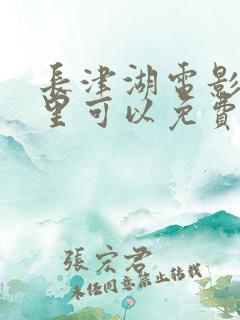 長津湖電影
里可以免費
張宏君
未经同意禁止转载